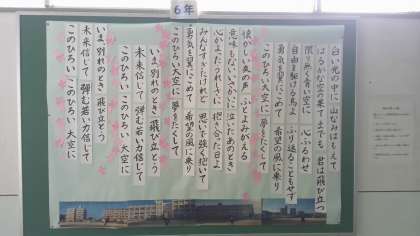 6年
白い光の中に 山なみはもえて
はるかな空の果てまでも 君は飛び立つ
限り無く青い空に 心ふるわせ
自由を駆ける鳥よ ふり返ることもせず
勇気を翼にこめて 希望の風に乗り
このひろい大空に 夢をたくして
懐かしい友の声 ふとよみがえる
意味もないいさかいに 泣いたあのとき
心かよったうれしさに 抱き合った日よ
みんなすぎたけれど 思いで強く抱いて
勇気を翼にこめて 希望の風に乗り
このひろい大空に 夢をたくして
いま、別れのとき 飛び立とう
未来信じて 弾む若い力信じて
このひろい このひろい 大空に
いま、別れのとき 飛び立とう
未来信じて 弾む若い力信じて
このひろい このひろい 大空に